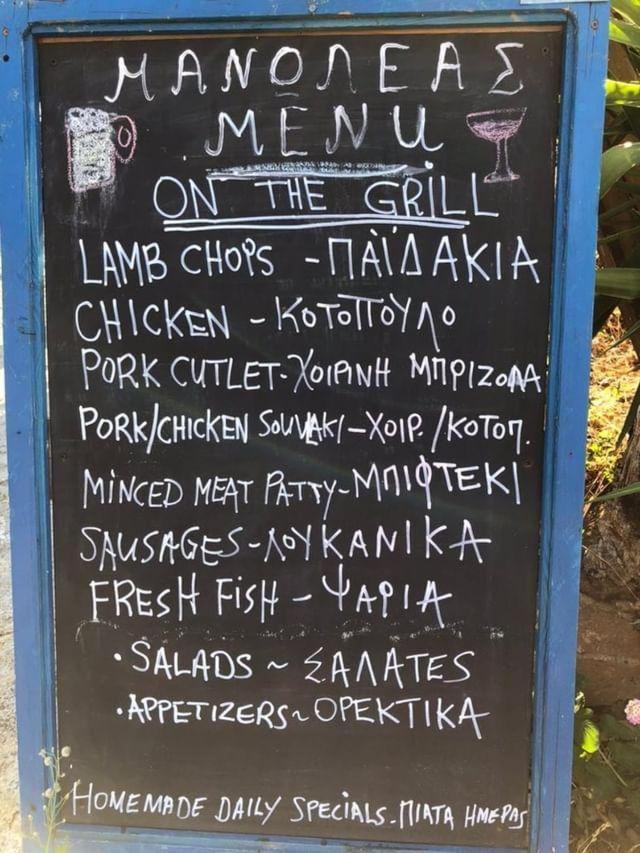 ΜΑΝΟΛΕΑΣ
MENU
ON THE GRILL
LAMB CHOPS - ΠΑΪΔΑΚΙΑ
CHICKEN - ΚΟΤΟΠΟΥΛΟ
PORK CUTLET - ΧΟΙΡΙΝΗ ΜΠΡΙΖΟΛΑ
PORK/CHICKEN SOUVLAKI - ΧΟΙΡ. /ΚΟΤΟΠ.
MINCED MEAT PATTY - ΜΠΙΦΤΕΚΙ
SAUSAGES - ΛΟΥΚΑΝΙΚΑ
FRESH FISH - ΨΑΡΙΑ
• SALADS ~ ΣΑΛΑΤΕS
• APPETIZERS ~ ΟΡΕΚΤΙΚΑ
HOMEMADE DAILY SPECIALS - ΠΙΑΤΑ ΗΜΕΡΑΣ